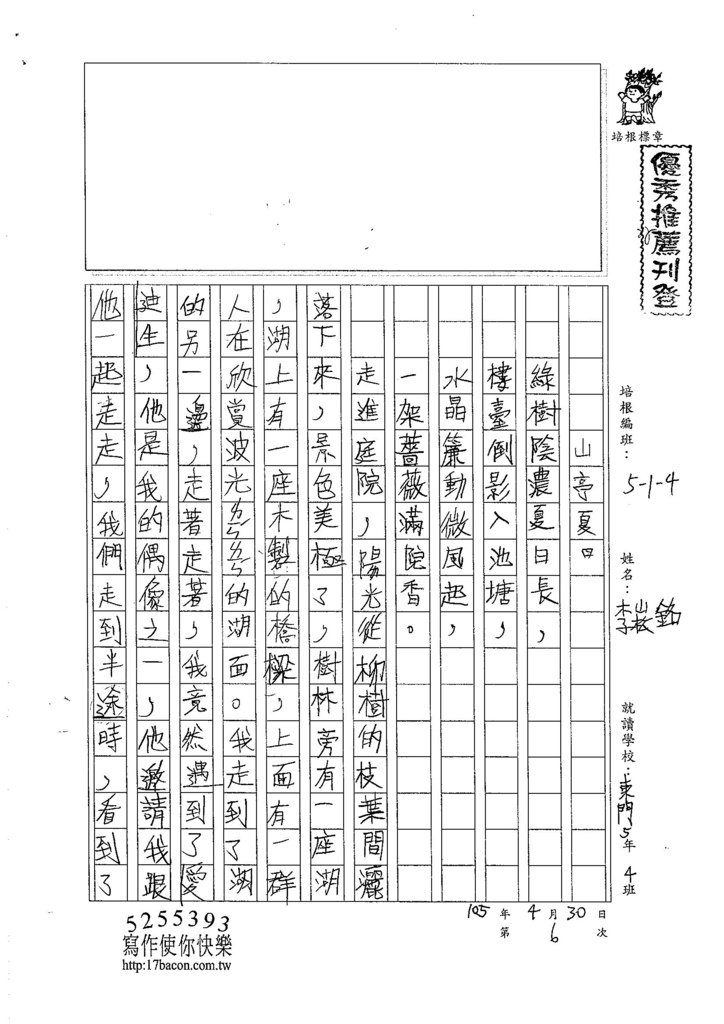 培根標章
優秀推薦刊登
培根編班：5-1-4
姓名：李崧銘
就讀學校：東門5年4班
105年4月30日
第6次
山亭夏日
綠樹陰濃夏日長，
樓臺倒影入池塘，
水晶簾動微風起，
一架薔薇滿院香。
走進庭院，陽光從柳樹的枝葉間灑
落下來，景色美極了，樹林旁有一座湖
，湖上有一座木製的橋樑，上面有一群
人在欣賞波光ㄌㄧㄣˊㄌㄧㄣˊ的湖面。我走到了湖
的另一邊，走著走著，我竟然遇到了愛
迪生，他是我的偶像之一，他邀請我跟
他一起走走，我們走到半途時，看到了
5255393
寫作使你快樂
http:17bacon.com.tw